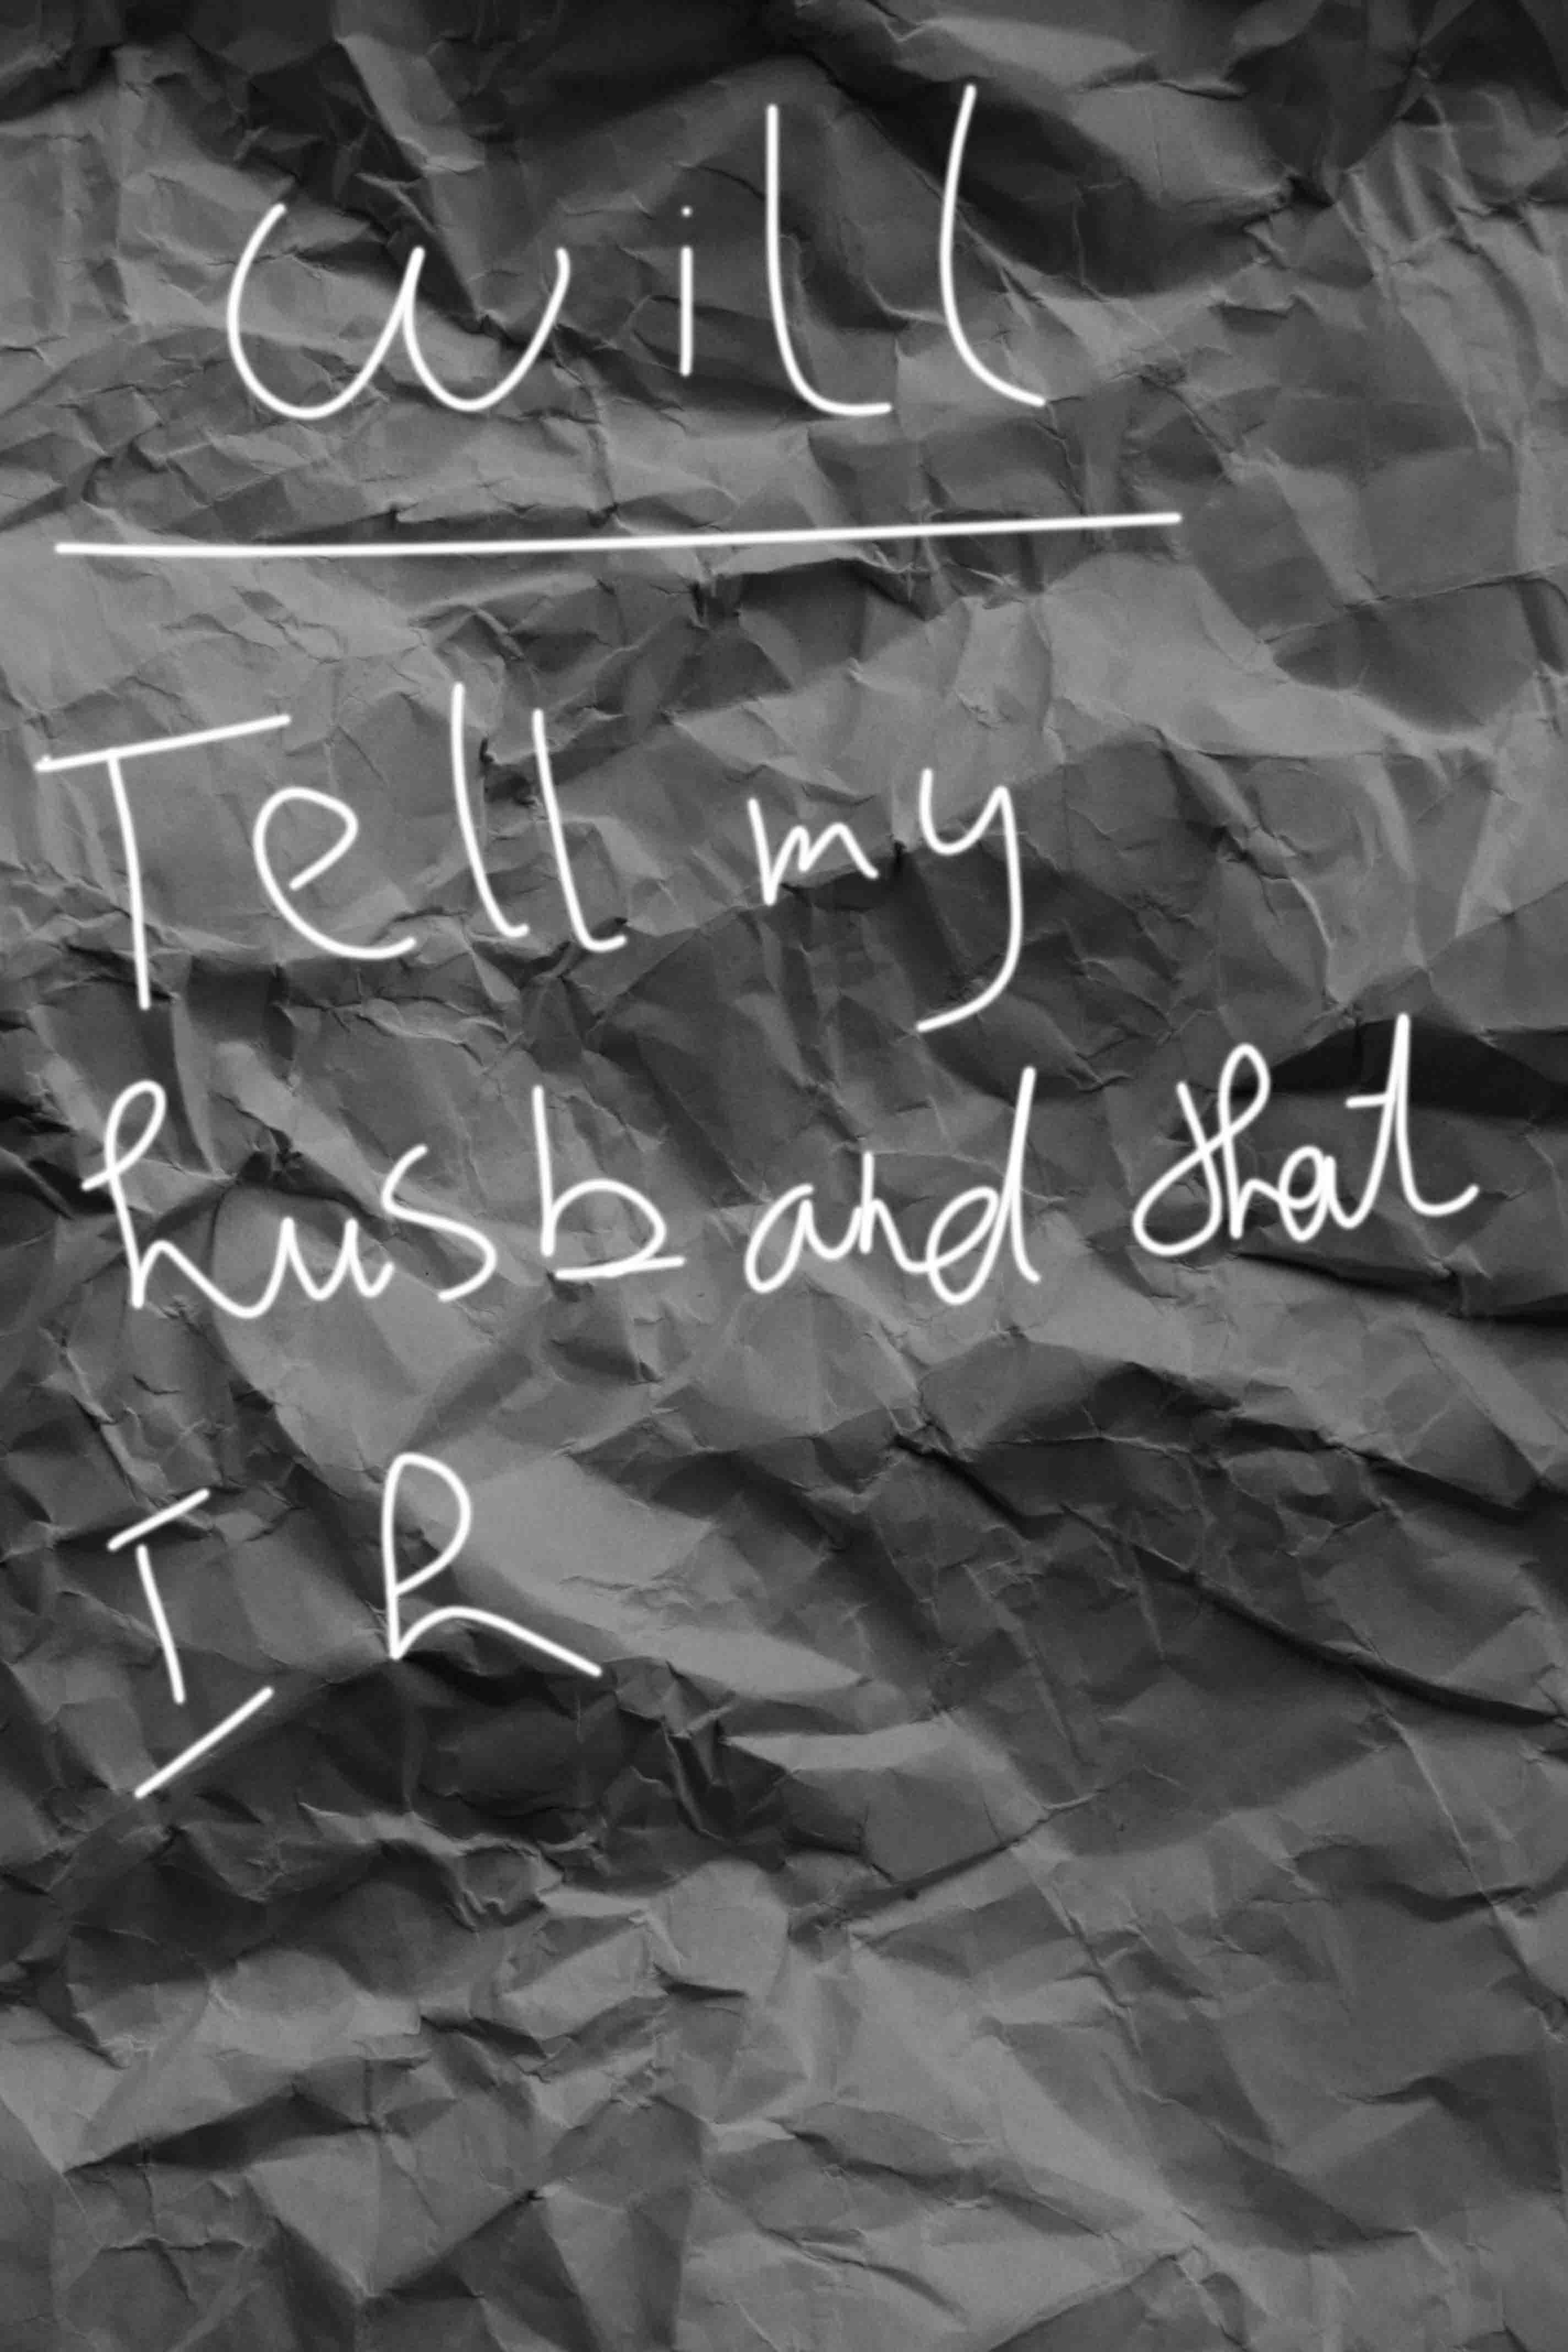 will
Tell my
husband that
I R